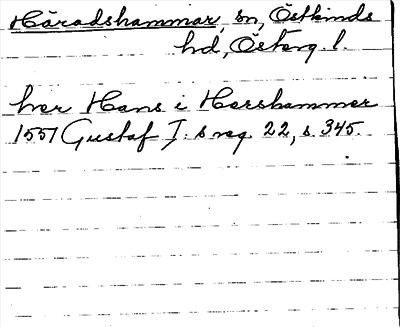 Häradshammar, sn, Östkinds
hd, Österg. l.
her Hans i Hershammer
1551 Gustaf I:s reg. 22, s. 345.